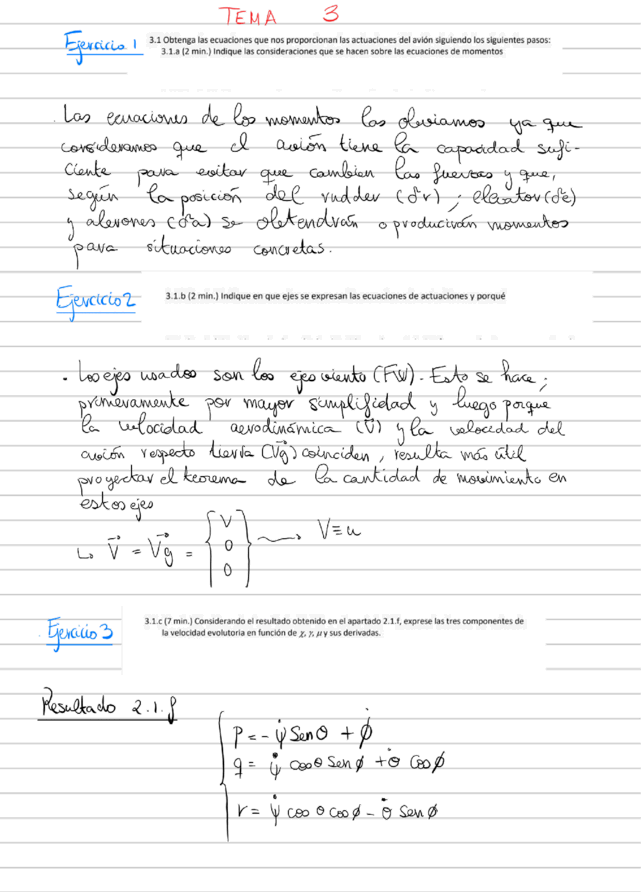 TEMA 3
Ejercicio 1
3.1 Obtenga las ecuaciones que nos proporcionan las actuaciones del avión siguiendo los siguientes pasos:
3.1.a (2 min.) Indique las consideraciones que se hacen sobre las ecuaciones de momentos
. Las ecuaciones de los momentos las obviamos ya que
consideramos que el avión tiene la capacidad sufi-
ciente para evitar que cambien las fuerzas y que,
según la posición del rudder (δr), elevator (δe)
y alerones (δa) se obtendrán o producirán momentos
para situaciones concretas.
Ejercicio 2
3.1.b (2 min.) Indique en que ejes se expresan las ecuaciones de actuaciones y porqué
. Los ejes usados son los ejes viento (FW). Esto se hace,
primeramente por mayor simplifidad y luego porque
la velocidad aerodinámica (V) y la velocidad del
avión respecto tierra (Vg) coinciden, resulta más útil
proyectar el teorema de la cantidad de movimiento en
estos ejes
↳ V⃗ = V⃗g = { V 0 0 } ⟶ V ≡ u
Ejercicio 3
3.1.c (7 min.) Considerando el resultado obtenido en el apartado 2.1.f, exprese las tres componentes de
la velocidad evolutoria en función de χ, γ, μ y sus derivadas.
Resultado 2.1.f
p = - ψ̇ sen θ + ϕ̇
q = ψ̇ cos θ sen ϕ + θ̇ cos ϕ
r = ψ̇ cos θ cos ϕ - θ̇ sen ϕ